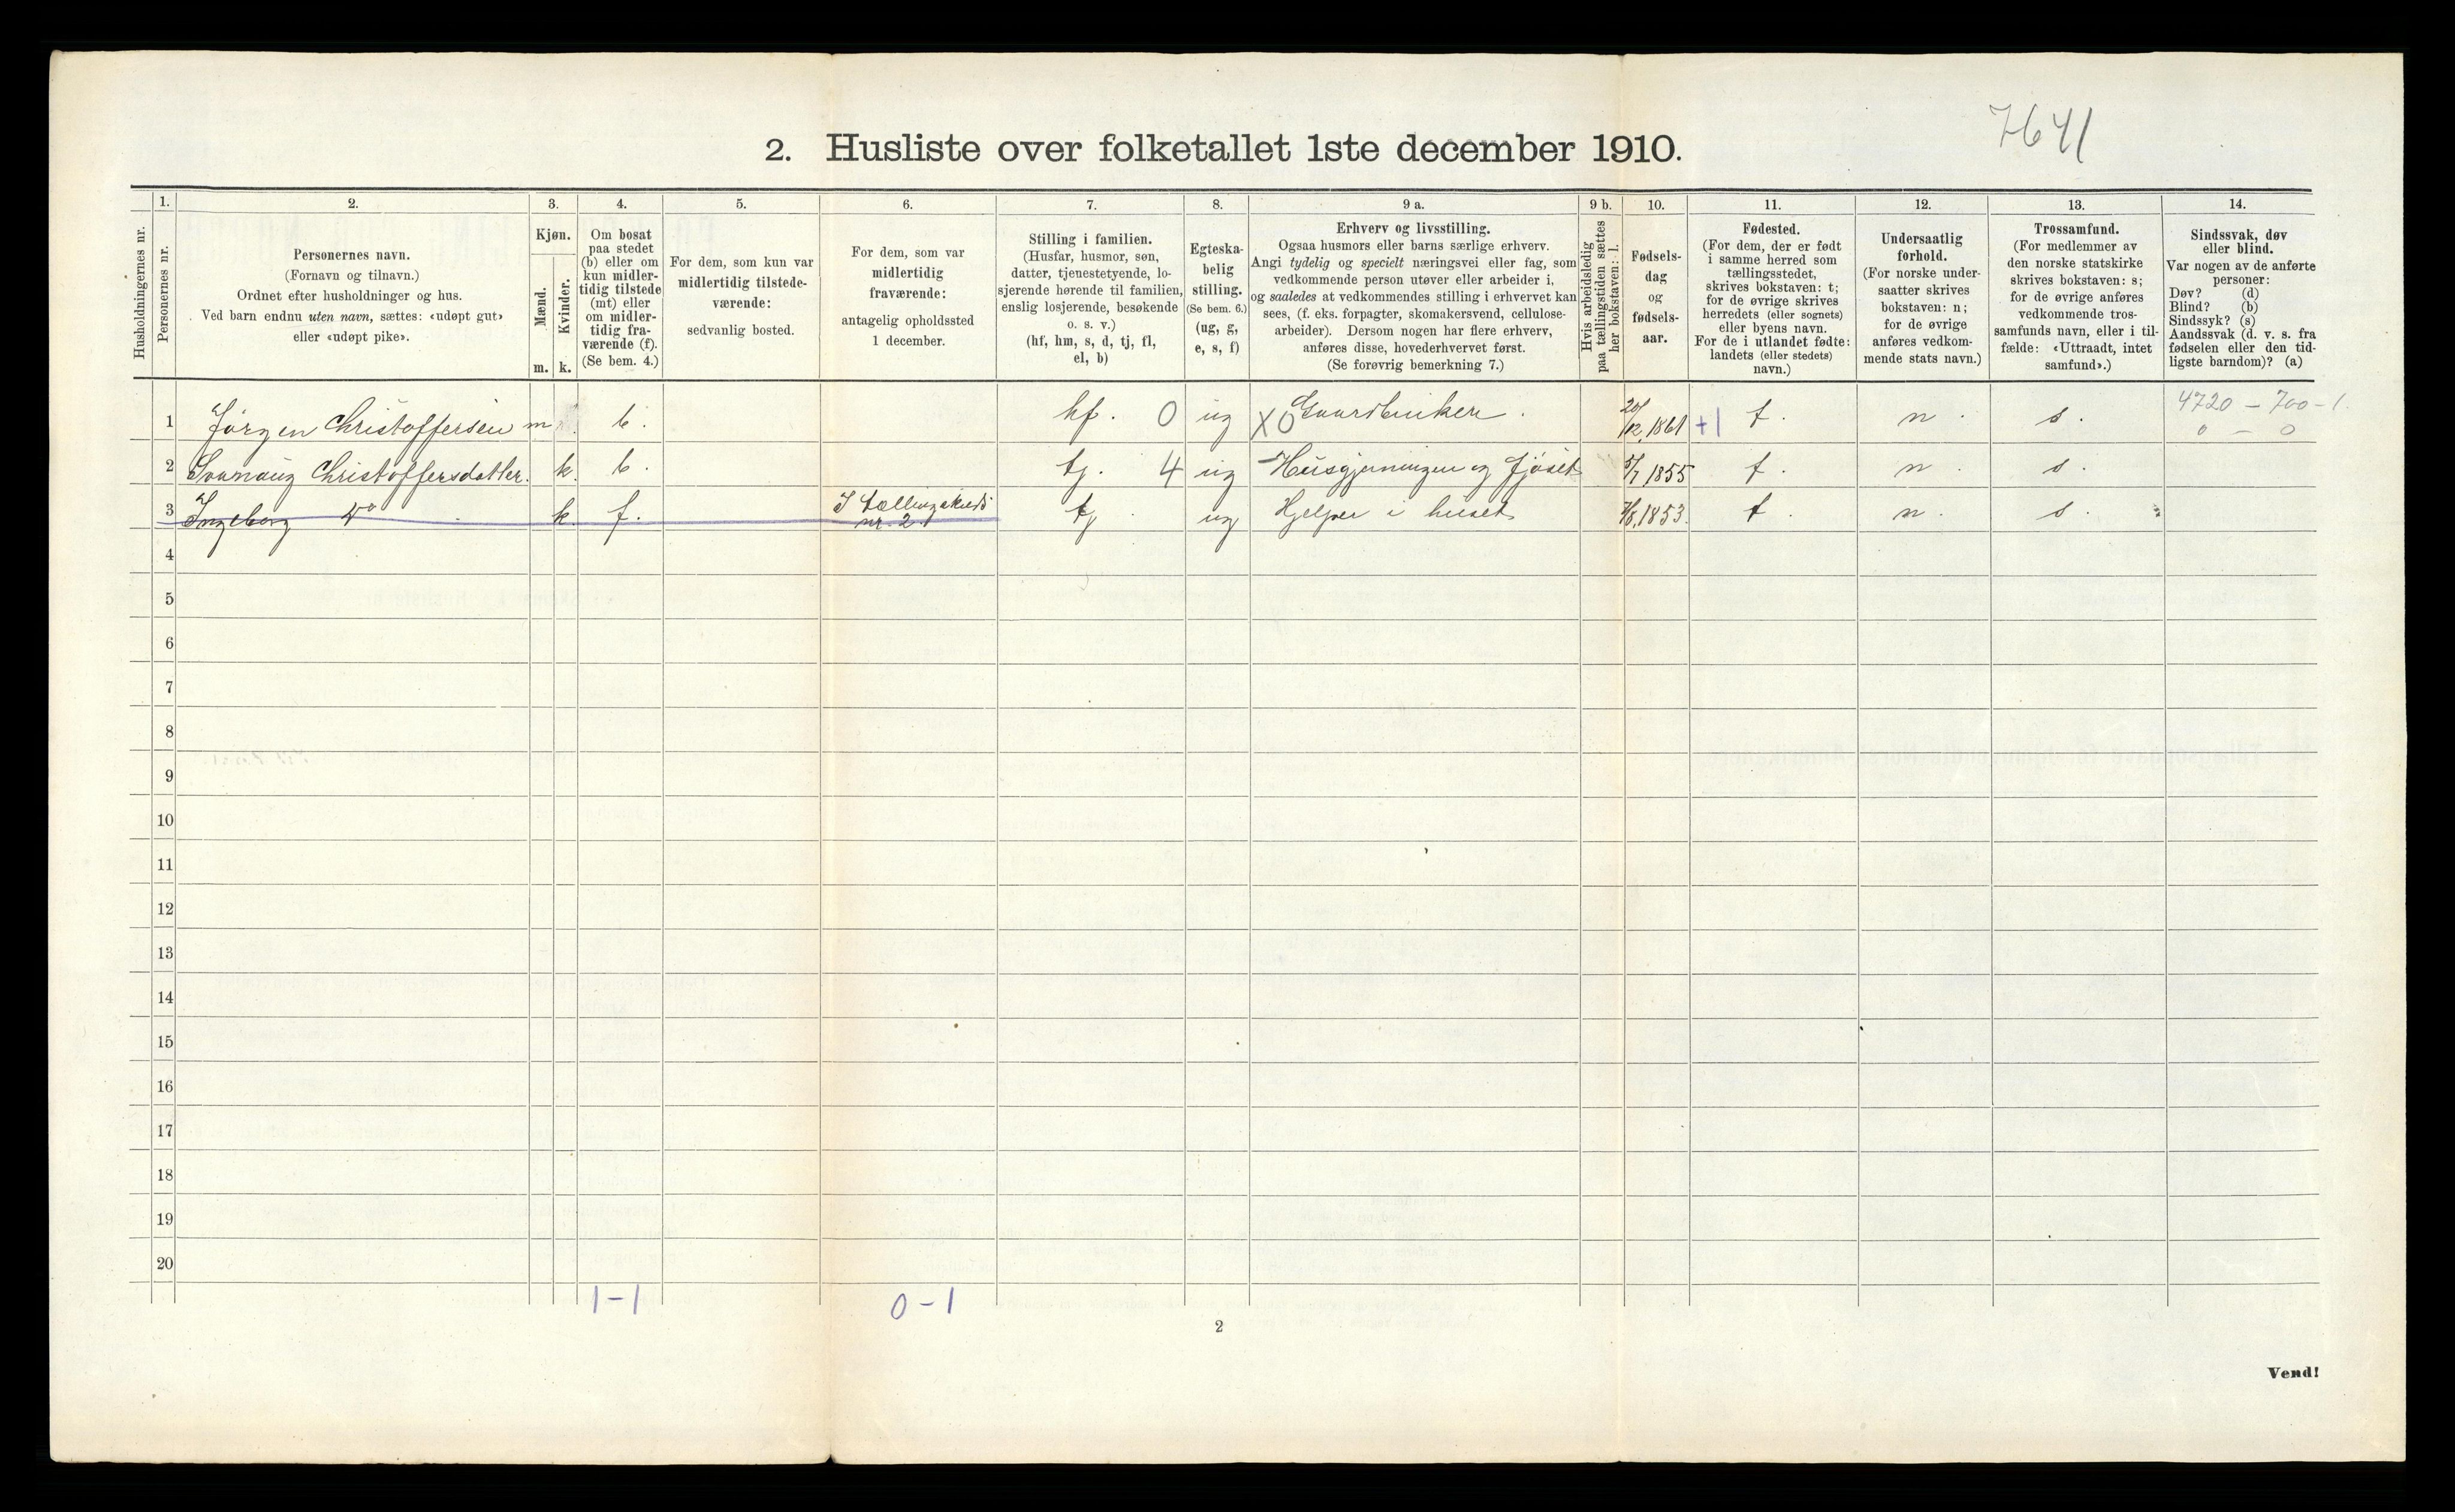 7641
2. Husliste over folketallet 1ste december 1910.
Husholdningernes nr.
1.
Personernes nr.
2.
Personernes navn.
(Fornavn og tilnavn.)
Ordnet efter husholdninger og hus.
Ved barn endnu uten navn, sættes: «udøpt gut»
eller «udøpt pike».
3.
Kjøn.
Mænd.
Kvinder.
m. k.
4.
Om bosat
paa stedet
(b) eller om
kun midler-
tidig tilstede
(mt) eller
om midler-
tidig fra-
værende (f).
(Se bem. 4.)
5.
For dem, som kun var
midlertidig tilstede-
værende:
sedvanlig bosted.
6.
For dem, som var
midlertidig
fraværende:
antagelig opholdssted
1 december.
7.
Stilling i familien.
(Husfar, husmor, søn,
datter, tjenestetyende, lo-
sjerende hørende til familien,
enslig losjerende, besøkende
o. s. v.)
(hf, hm, s, d, tj, fl,
el, b)
8.
Egteska-
belig
stilling.
(Se bem. 6.)
(ug, g,
e, s, f)
9 a.
Erhverv og livsstilling.
Ogsaa husmors eller barns særlige erhverv.
Angi tydelig og specielt næringsvei eller fag, som
vedkommende person utøver eller arbeider i,
og saaledes at vedkommendes stilling i erhvervet kan
sees, (f. eks. forpagter, skomakersvend, cellulose-
arbeider). Dersom nogen har flere erhverv,
anføres disse, hovederhvervet først.
(Se forøvrig bemerkning 7.)
9 b.
Hvis arbeidsledig
paa tællingstiden sættes
her bokstaven: l.
10.
Fødsels-
dag
og
fødsels-
aar.
11.
Fødested.
(For dem, der er født
i samme herred som
tællingsstedet,
skrives bokstaven: t;
for de øvrige skrives
herredets (eller sognets)
eller byens navn.
For de i utlandet fødte:
landets (eller stedets)
navn.)
12.
Undersaatlig
forhold.
(For norske under-
saatter skrives
bokstaven: n;
for de øvrige
anføres vedkom-
mende stats navn.)
13.
Trossamfund.
(For medlemmer av
den norske statskirke
skrives bokstaven: s;
for de øvrige anføres
vedkommende tros-
samfunds navn, eller i til-
fælde: «Uttraadt, intet
samfund».)
14.
Sindssvak, døv
eller blind.
Var nogen av de anførte
personer:
Døv? (d)
Blind? (b)
Sindssyk? (s)
Aandssvak (d. v. s. fra
fødselen eller den tid-
ligste barndom)? (a)
1 Jørgen Christoffersen m b. hf. 0 ug X0 Gaardbruker. 20/12 1861 +1 t. n. s. 4720 - 700 - 1.
0 - 0
2 Christoffersdatter. k. b. tj. 4 ug - Husgjerningen og Fjöset 5/7 1855 t. n. s.
3 Ingeborg do k. f. I Tællingskreds tj ug Hjelper i huset 7/8 1853. t. n. s.
nr. 2.
4
5
6
7
8
9
10
11
12
13
14
15
16
17
18
19
20
1-1 0-1
2
Vend!